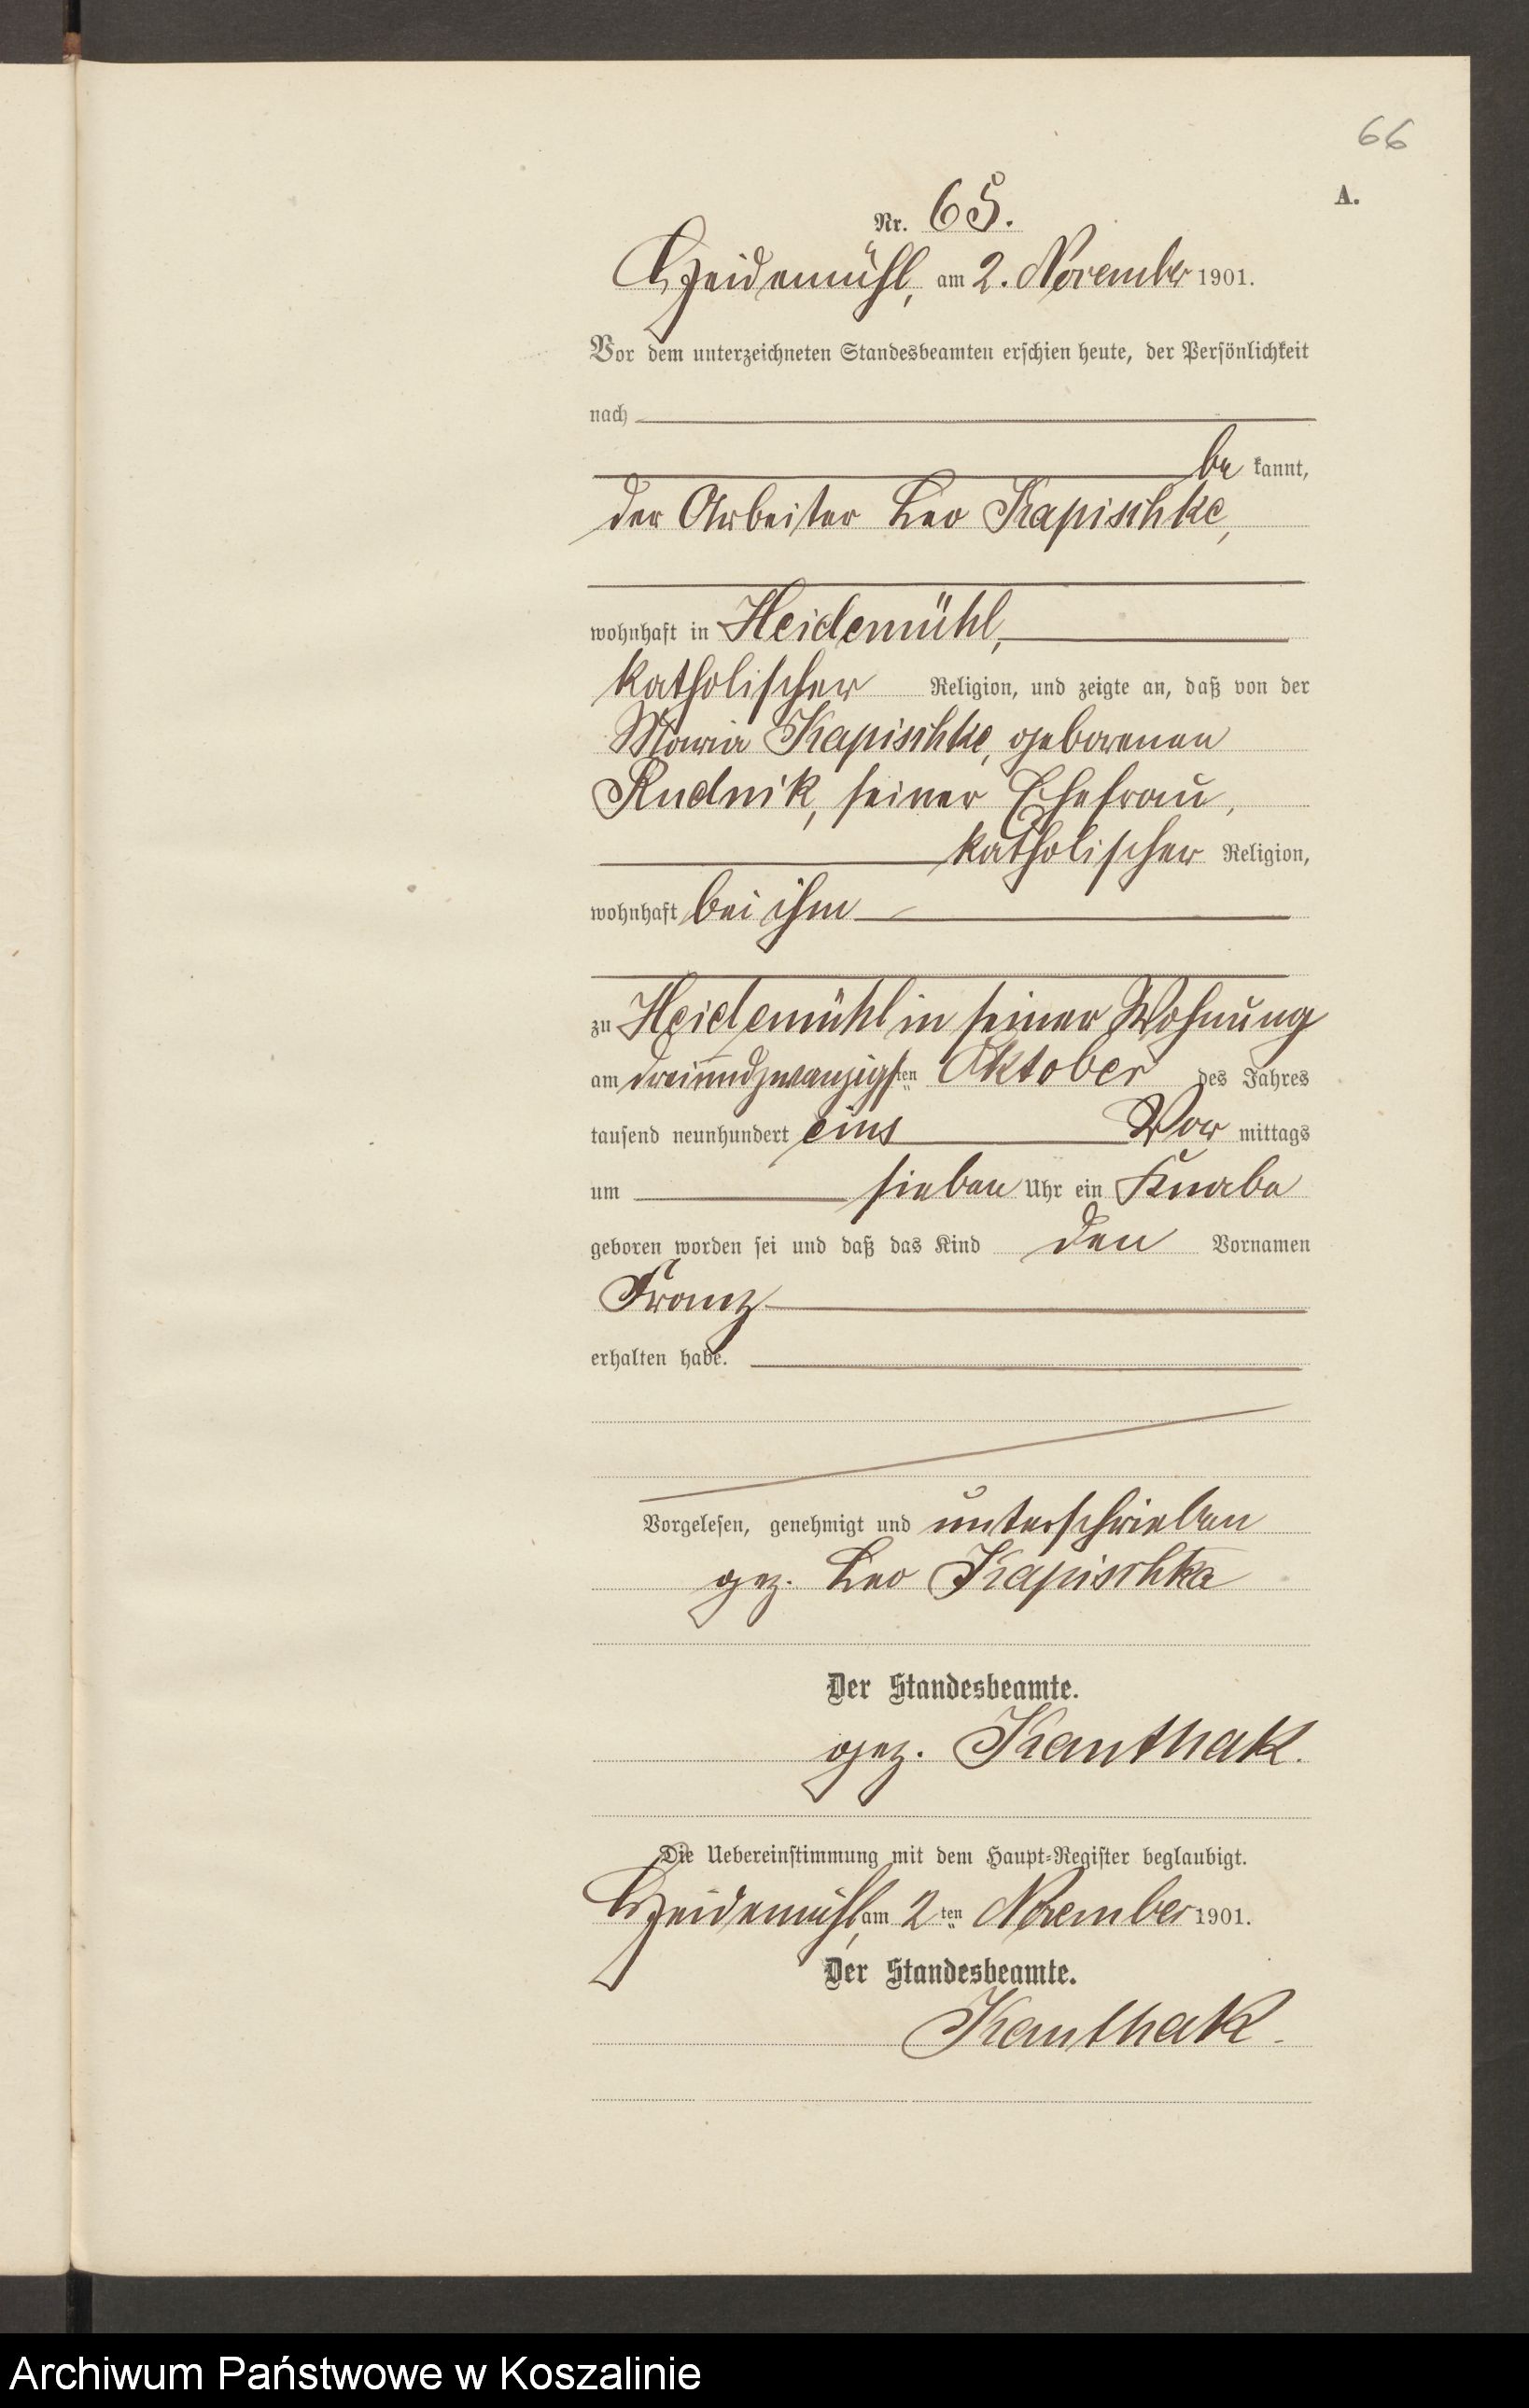 66
A.
Nr. 65.
Heidemühl, am 2. November 1901.
Vor dem unterzeichneten Standesbeamten erschien heute, der Persönlichkeit
nach
be kannt,
der Arbeiter Leo Kapischke,
wohnhaft in Heidemühl,
katholischer Religion, und zeigte an, daß von der
Maria Kapischke, geborenen
Rudnik, seiner Ehefrau,
katholischer Religion,
wohnhaft bei ihm
zu Heidemühl in seiner Wohnung
am dreiundzwanzigsten Oktober des Jahres
tausend neunhundert eins Vor mittags
um sieben Uhr ein Knabe
geboren worden sei und daß das Kind den Vornamen
Franz
erhalten habe.
Vorgelesen, genehmigt und unterschrieben
gez. Leo Kapischka
Der Standesbeamte.
gez. Kanthak.
Die Uebereinstimmung mit dem Haupt-Register beglaubigt.
Heidemühl, am 2ten November 1901.
Der Standesbeamte.
Kanthak.
Archiwum Państwowe w Koszalinie